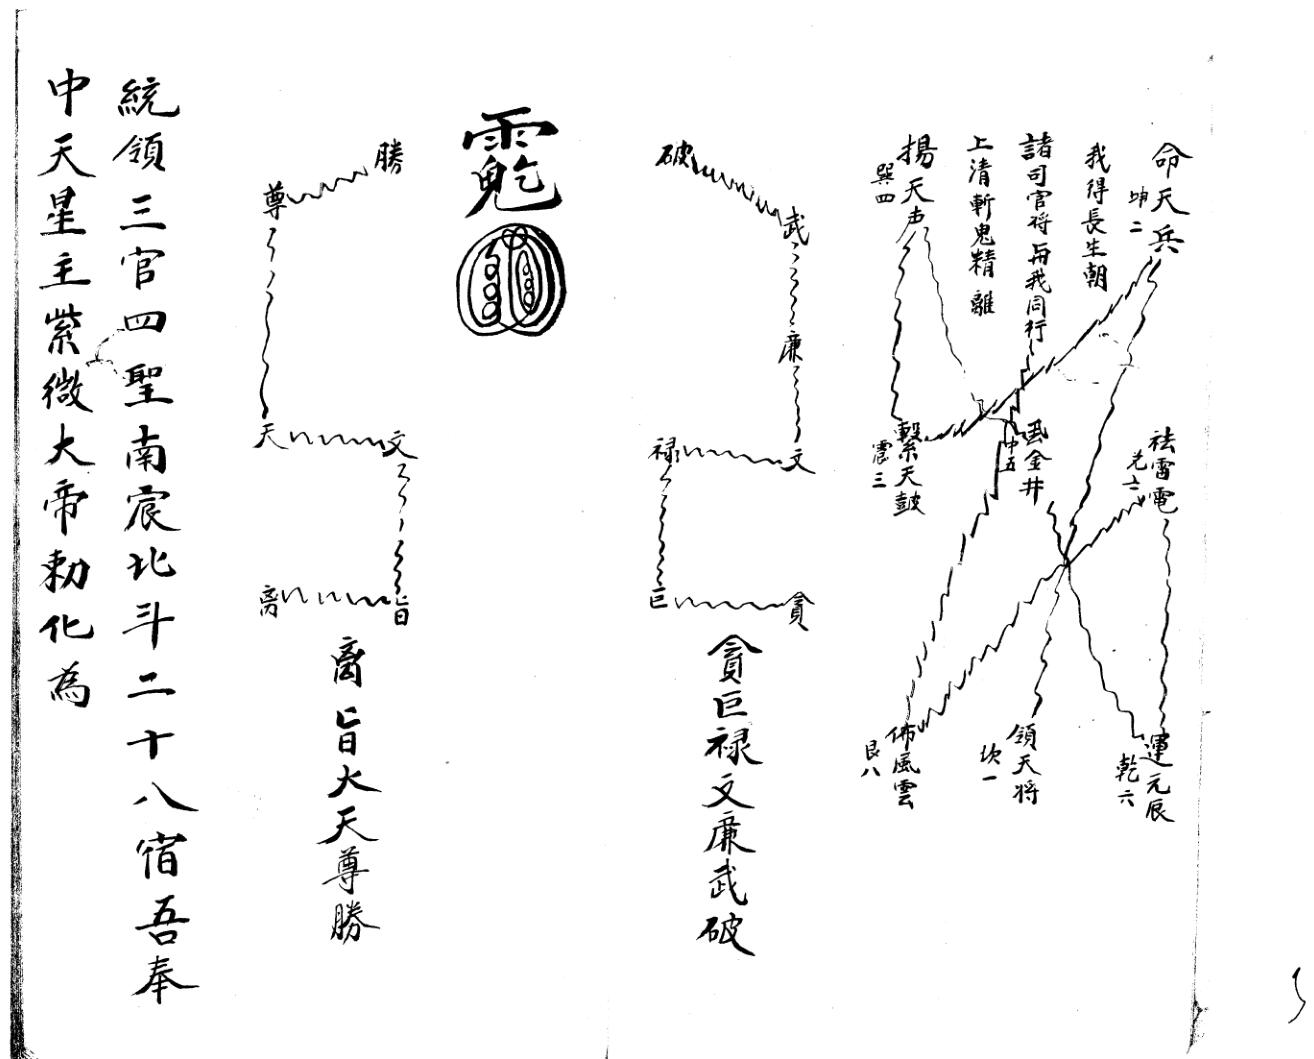 命天兵
坤二
我得長生朝
諸司官将与我同行
上清斬鬼精離
揚天声
巽四
祛雷電
金井
中五
擊天鼓
震三
運元辰
乾六
領天将
坎一
佈風雲
艮八
破
武
廉
文
禄
巨
貪
貪巨禄文廉武破
勝
尊
天
文
旨
离
离旨大天尊勝
統領三官四聖南宸北斗二十八宿吾奉
中天星主紫微大帝勅化為